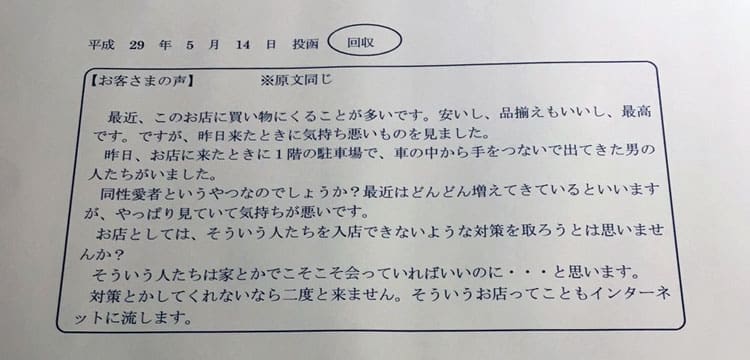 平成 29 年 5 月 14 日 投函 回収
【お客さまの声】 ※原文同じ
最近、このお店に買い物にくることが多いです。安いし、品揃えもいいし、最高
です。ですが、昨日来たときに気持ち悪いものを見ました。
昨日、お店に来たときに1階の駐車場で、車の中から手をつないで出てきた男の
人たちがいました。
同性愛者というやつなのでしょうか？最近はどんどん増えてきているといいます
が、やっぱり見ていて気持ちが悪いです。
お店としては、そういう人たちを入店できないような対策を取ろうとは思いませ
んか？
そういう人たちは家とかでこそこそ会っていればいいのに・・・と思います。
対策とかしてくれないなら二度と来ません。そういうお店ってこともインターネ
ットに流します。